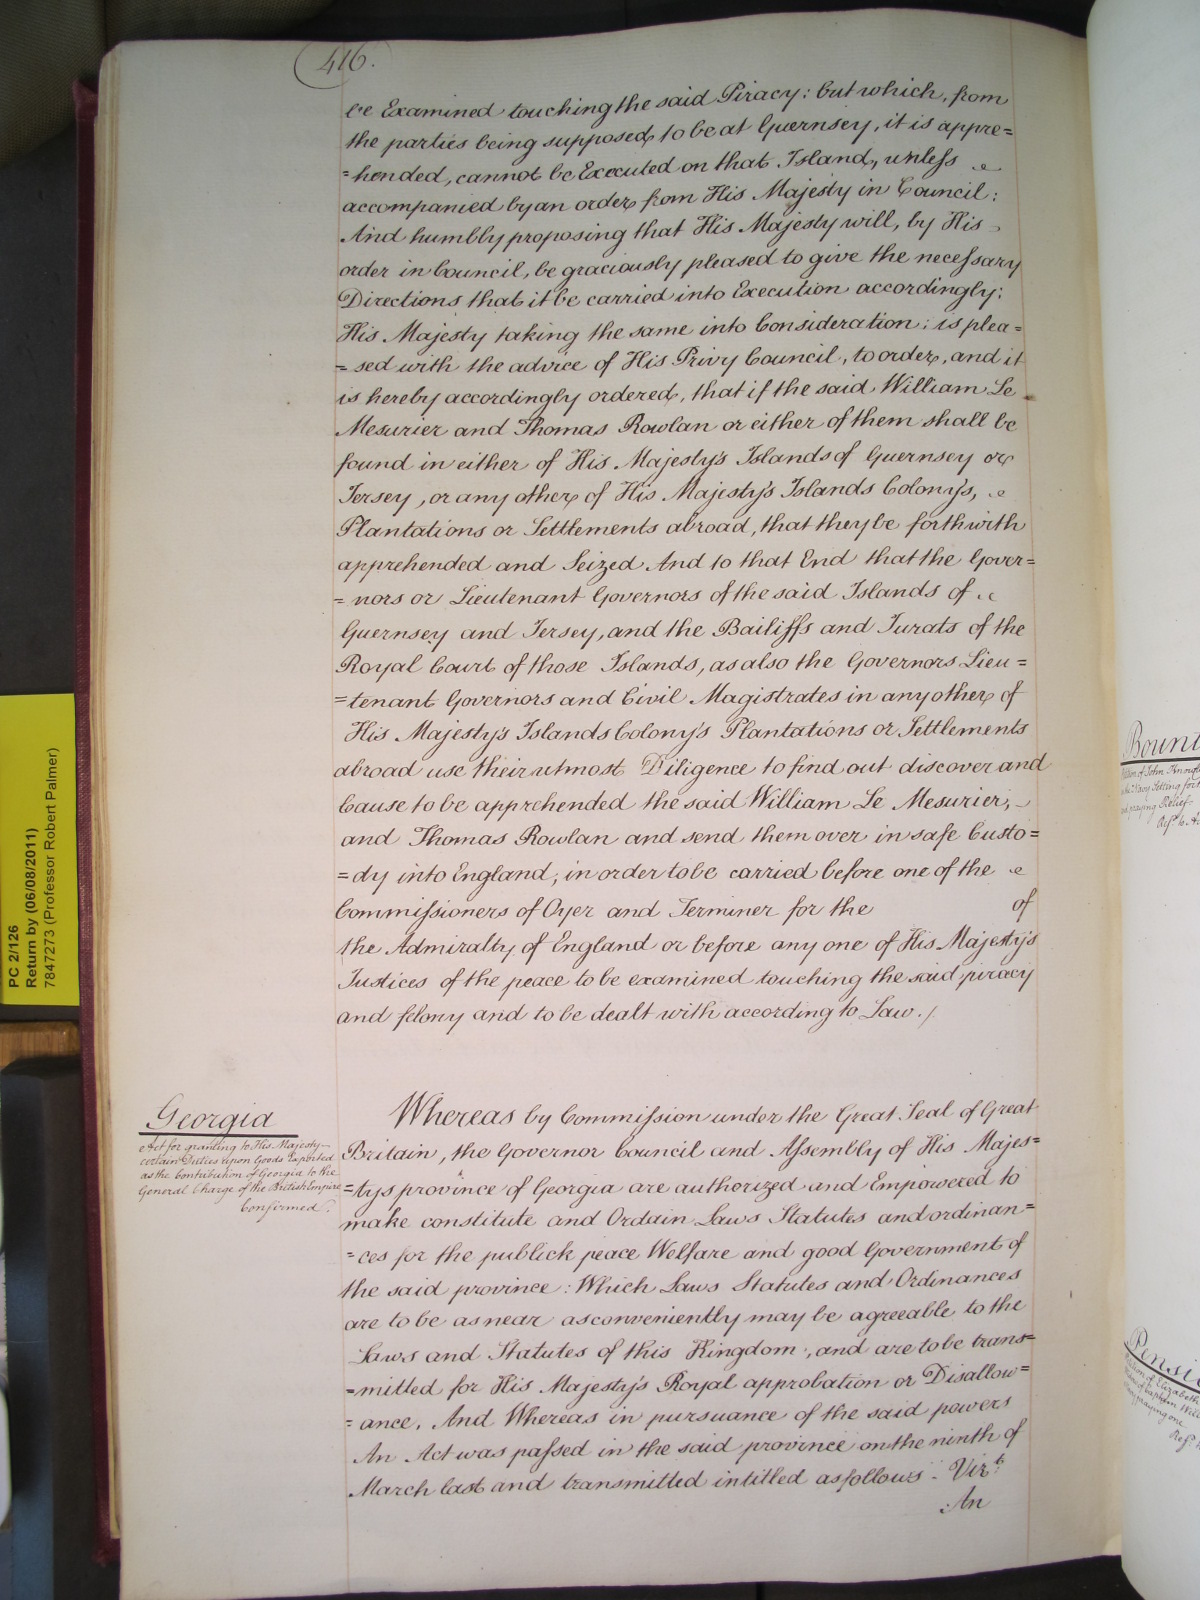 416.
be Examined touching the said Piracy: but which, from
the parties being supposed to be at Guernsey, it is appre=
=hended, cannot be Executed on that Island, unless
accompanied by an order from His Majesty in Council:
And humbly proposing that His Majesty will, by His
order in Council, be graciously pleased to give the necessary
Directions that it be carried into Execution accordingly:
His Majesty taking the same into Consideration: is plea=
=sed with the advice of His Privy Council, to order, and it
is hereby accordingly ordered, that if the said William Le
Mesurier and Thomas Rowlan or either of them shall be
found in either of His Majesty's Islands of Guernsey or
Jersey, or any other of His Majesty's Islands Colony's,
Plantations or Settlements abroad, that they be forthwith
apprehended and Seized And to that End that the Gover=
=nors or Lieutenant Governors of the said Islands of
Guernsey and Jersey, and the Bailiffs and Jurats of the
Royal Court of those Islands, as also the Governors Lieu=
=tenant Governors and Civil Magistrates in any other of
His Majesty's Islands Colony's Plantations or Settlements
abroad use their utmost Diligence to find out discover and
Cause to be apprehended the said William Le Mesurier,
and Thomas Rowlan and send them over in safe Custo=
=dy into England, in order to be carried before one of the
Commissioners of Oyer and Terminer for the of
the Admiralty of England or before any one of His Majesty's
Justices of the peace to be examined touching the said piracy
and felony and to be dealt with according to Law./
Georgia
Act for granting to His Majesty
certain Duties upon Goods Exported
as the Contribution of Georgia to the
General Charge of the British Empire
Confirmed.
Whereas by Commission under the Great Seal of Great
Britain, the Governor Council and Assembly of His Majes=
=tys province of Georgia are authorized and Empowered to
make constitute and Ordain Laws Statutes and ordinan=
=ces for the publick peace Welfare and good Government of
the said province: Which Laws Statutes and Ordinances
are to be as near as conveniently may be agreeable to the
Laws and Statutes of this Kingdom, and are to be trans=
=mitted for His Majesty's Royal approbation or Disallow=
=ance. And Whereas in pursuance of the said powers
An Act was passed in the said province on the ninth of
March last and transmitted intitled as follows. Vizt.
An
PC 2/126
Return by (06/08/2011)
7847273 (Professor Robert Palmer)
Bount
Pensi